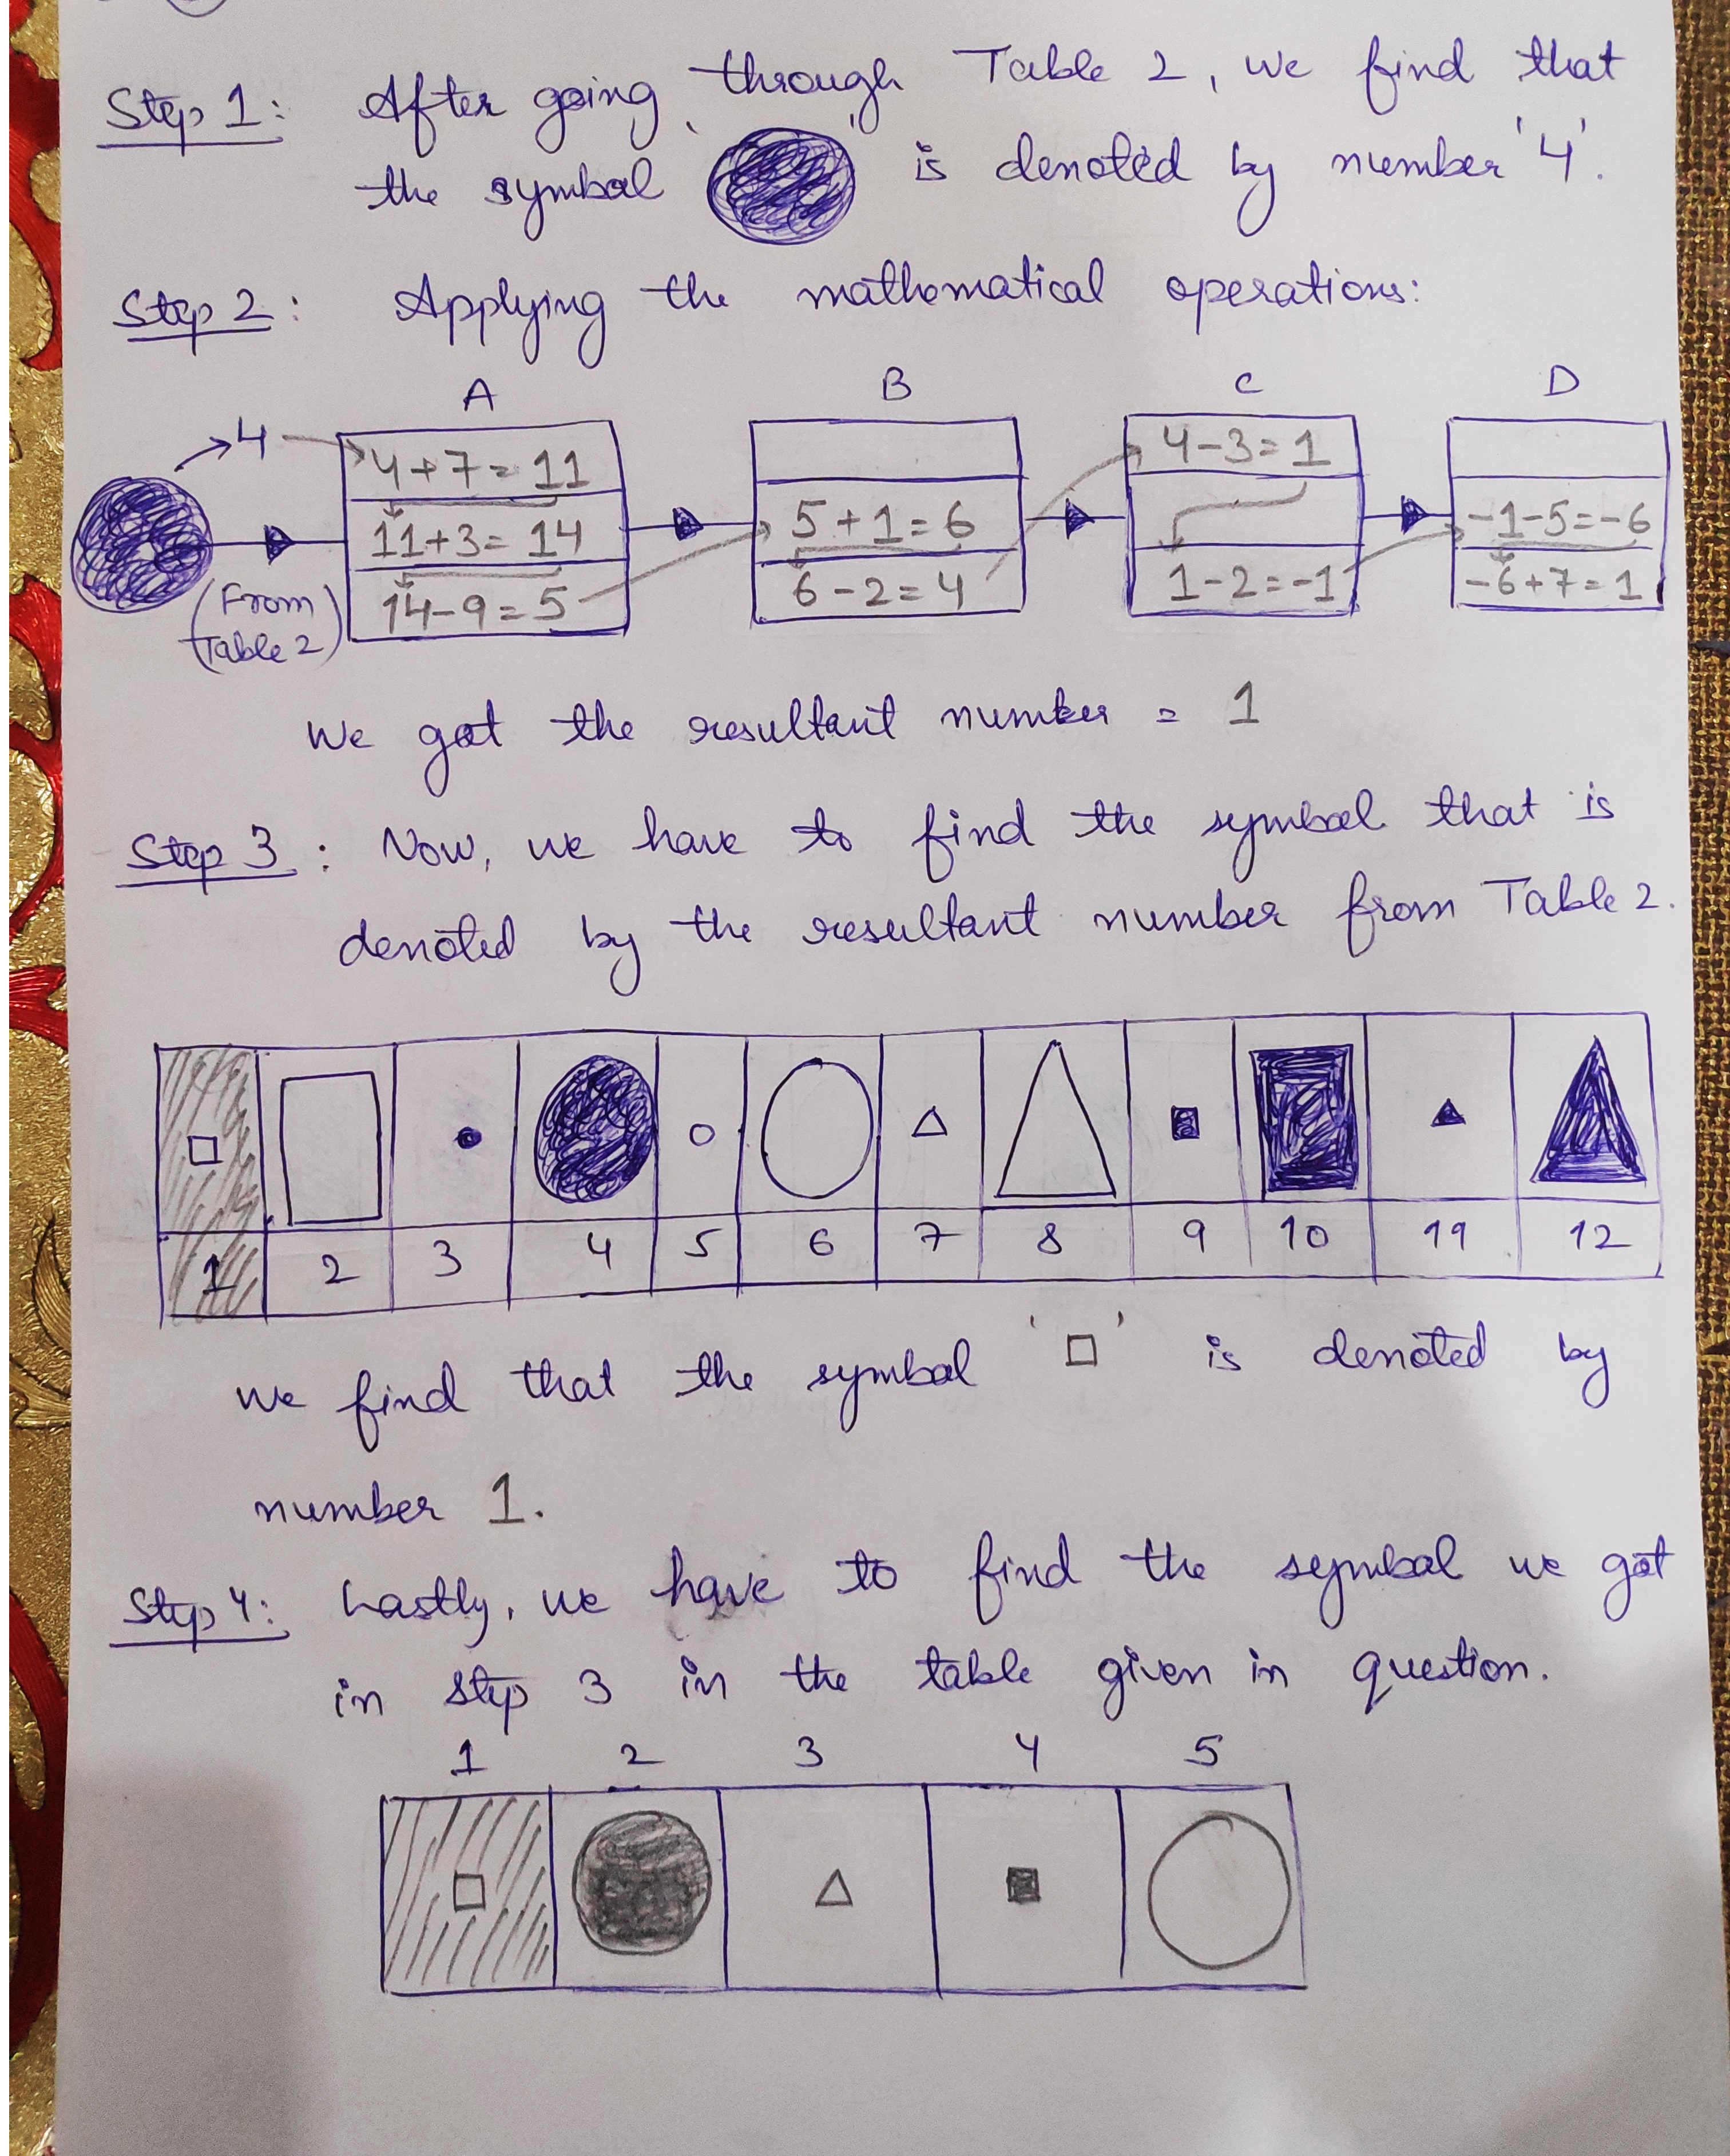 Step 1: After going through Table 2, we find that
the symbol ' ' is denoted by number '4'.
Step 2: Applying the mathematical operations:
A B C D
4
4+7=11
11+3=14
14-9=5
5+1=6
6-2=4
4-3=1
1-2=-1
-1-5=-6
-6+7=1
(From
Table 2)
We got the resultant number = 1
Step 3: Now, we have to find the symbol that is
denoted by the resultant number from Table 2.
1 2 3 4 5 6 7 8 9 10 11 12
we find that the symbol '□' is denoted by
number 1.
Step 4: Lastly, we have to find the symbol we got
in step 3 in the table given in question.
1 2 3 4 5